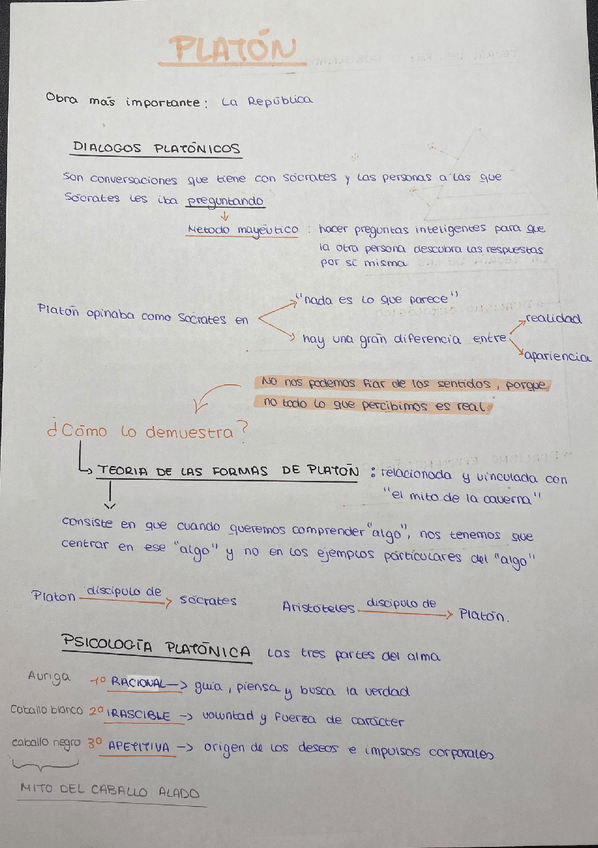 PLATÓN
Obra más importante: La República
DIALOGOS PLATÓNICOS
Son conversaciones que tiene con Sócrates y las personas a las que
Sócrates les iba preguntando
Metodo mayéutico : hacer preguntas inteligentes para que
la otra persona descubra las respuestas
por sí misma
Platón opinaba como Sócrates en
"nada es lo que parece"
hay una gran diferencia entre
realidad
apariencia
No nos podemos fiar de los sentidos, porque
no todo lo que percibimos es real.
¿Cómo lo demuestra?
TEORIA DE LAS FORMAS DE PLATÓN : relacionada y vinculada con
"el mito de la caverna"
consiste en que cuando queremos comprender "algo", nos tenemos que
centrar en ese "algo" y no en los ejemplos particulares del "algo"
Platon discipulo de Sócrates Aristoteles discipulo de Platón.
PSICOLOGÍA PLATÓNICA Las tres partes del alma
Auriga 1º RACIONAL -> guia, piensa y busca la verdad
Caballo blanco 2º IRASCIBLE -> voluntad y fuerza de carácter
caballo negro 3º APETITIVA -> origen de los deseos e impulsos corporales
MITO DEL CABALLO ALADO